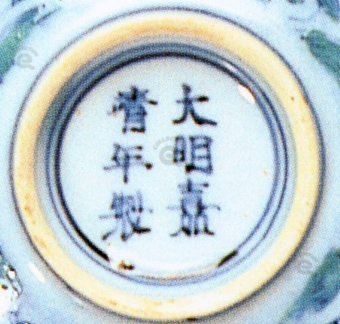 大明嘉
青年製